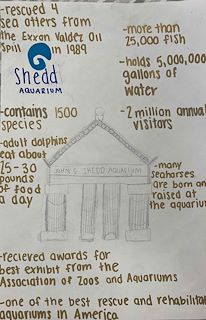 -rescued 4
sea otters from
the Exxon Valdez Oil
Spill in 1989
-more than
25,000 fish
Shedd
AQUARIUM
-holds 5,000,000
gallons of
water
-contains 1500
species
-2 million annual
visitors
-adult dolphins
eat about
25-30
pounds
of food
a day
JOHN G. SHEDD AQUARIUM
-many
seahorses
are born and
raised at
the aquarium
-recieved awards for
best exhibit from the
Association of Zoos and Aquariums
-one of the best rescue and rehabilita
aquariums in America